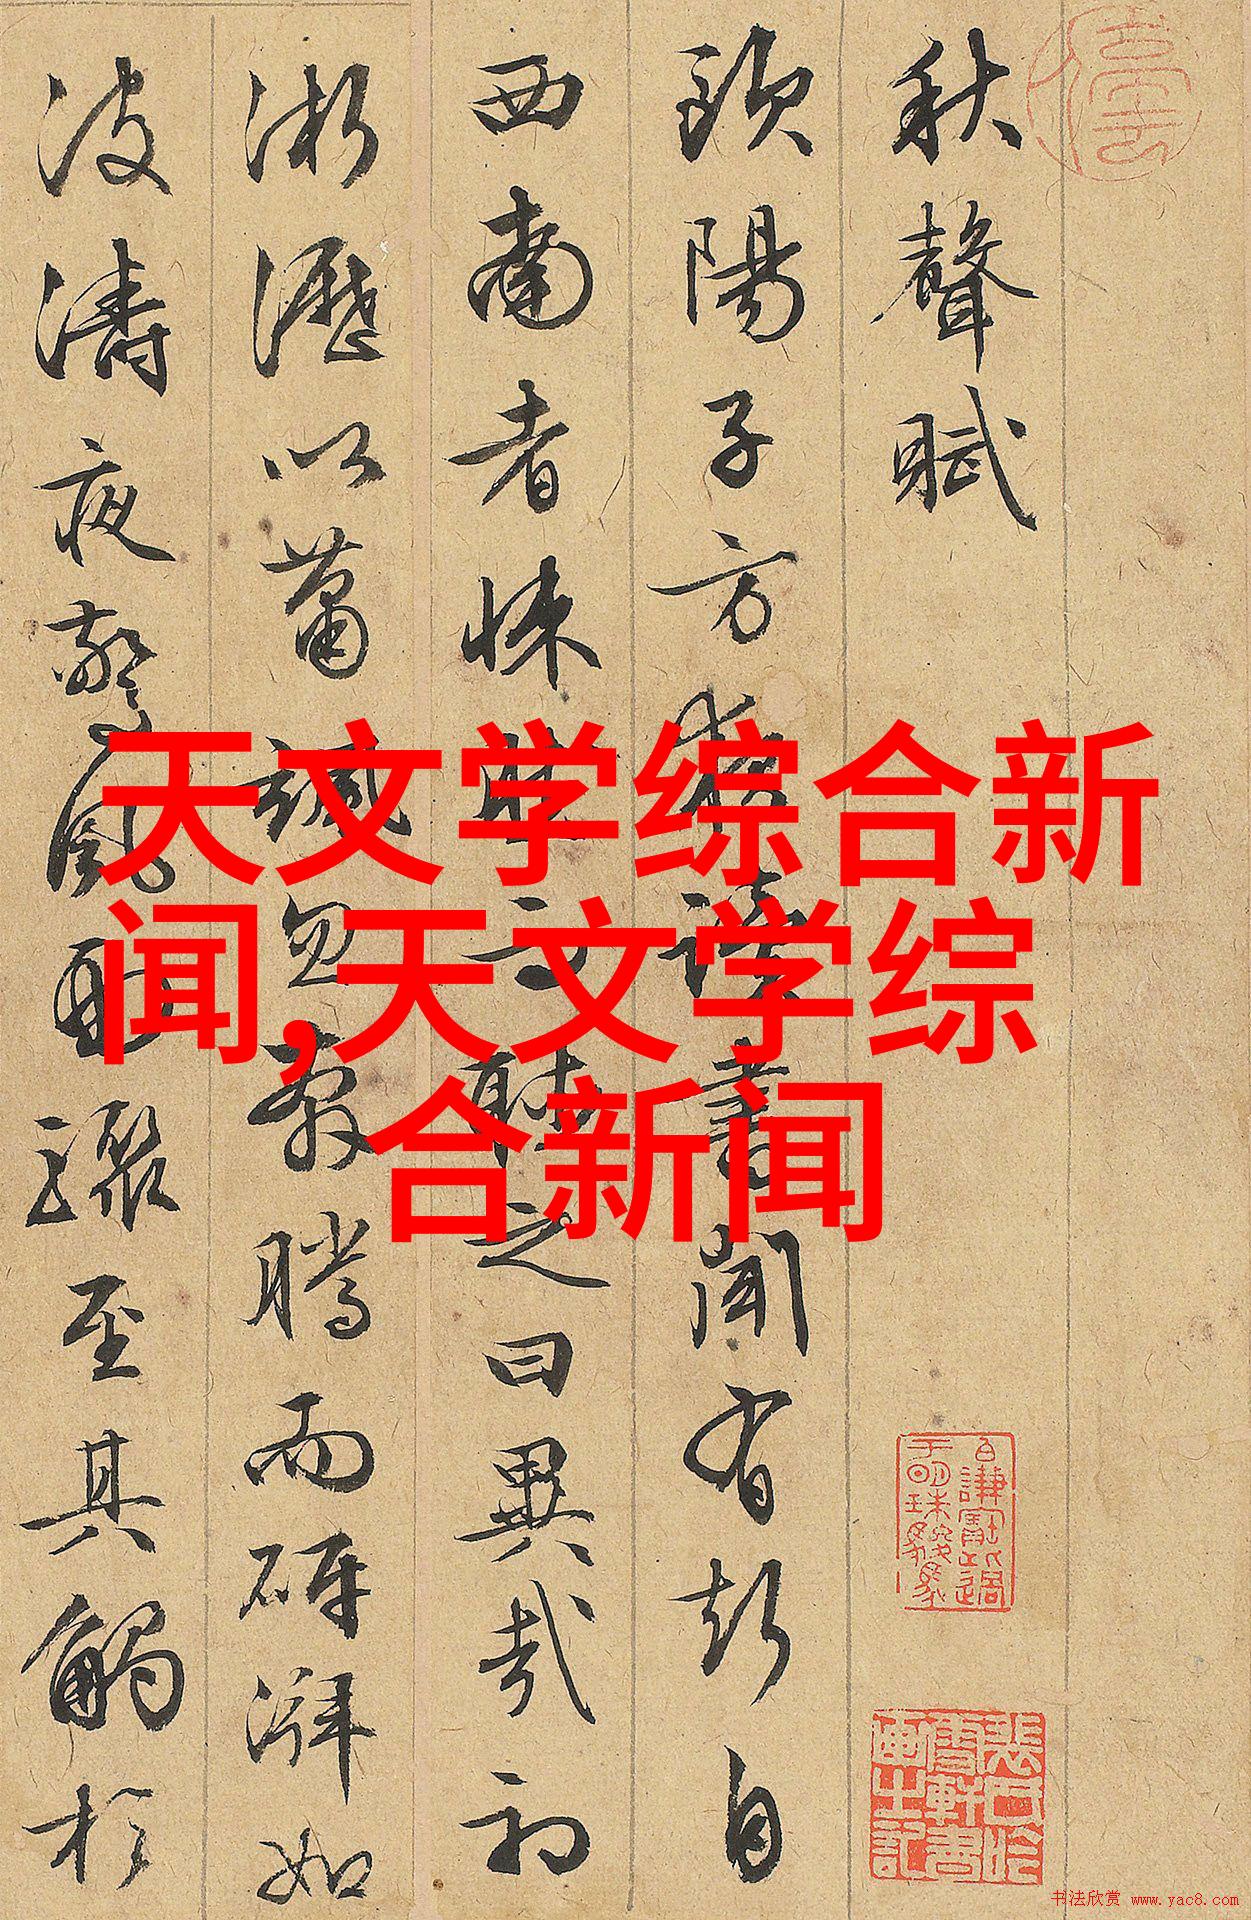 秋聲賦
歐陽子方夜讀書聞有聲自
西南者悚然而聽之曰異哉初
淅瀝以蕭颯忽奔騰而砰湃如
波濤夜驚風雨驟至其觸於
天文学综合新
闻,天文学综
合新闻
书法欣赏 www.yac8.com